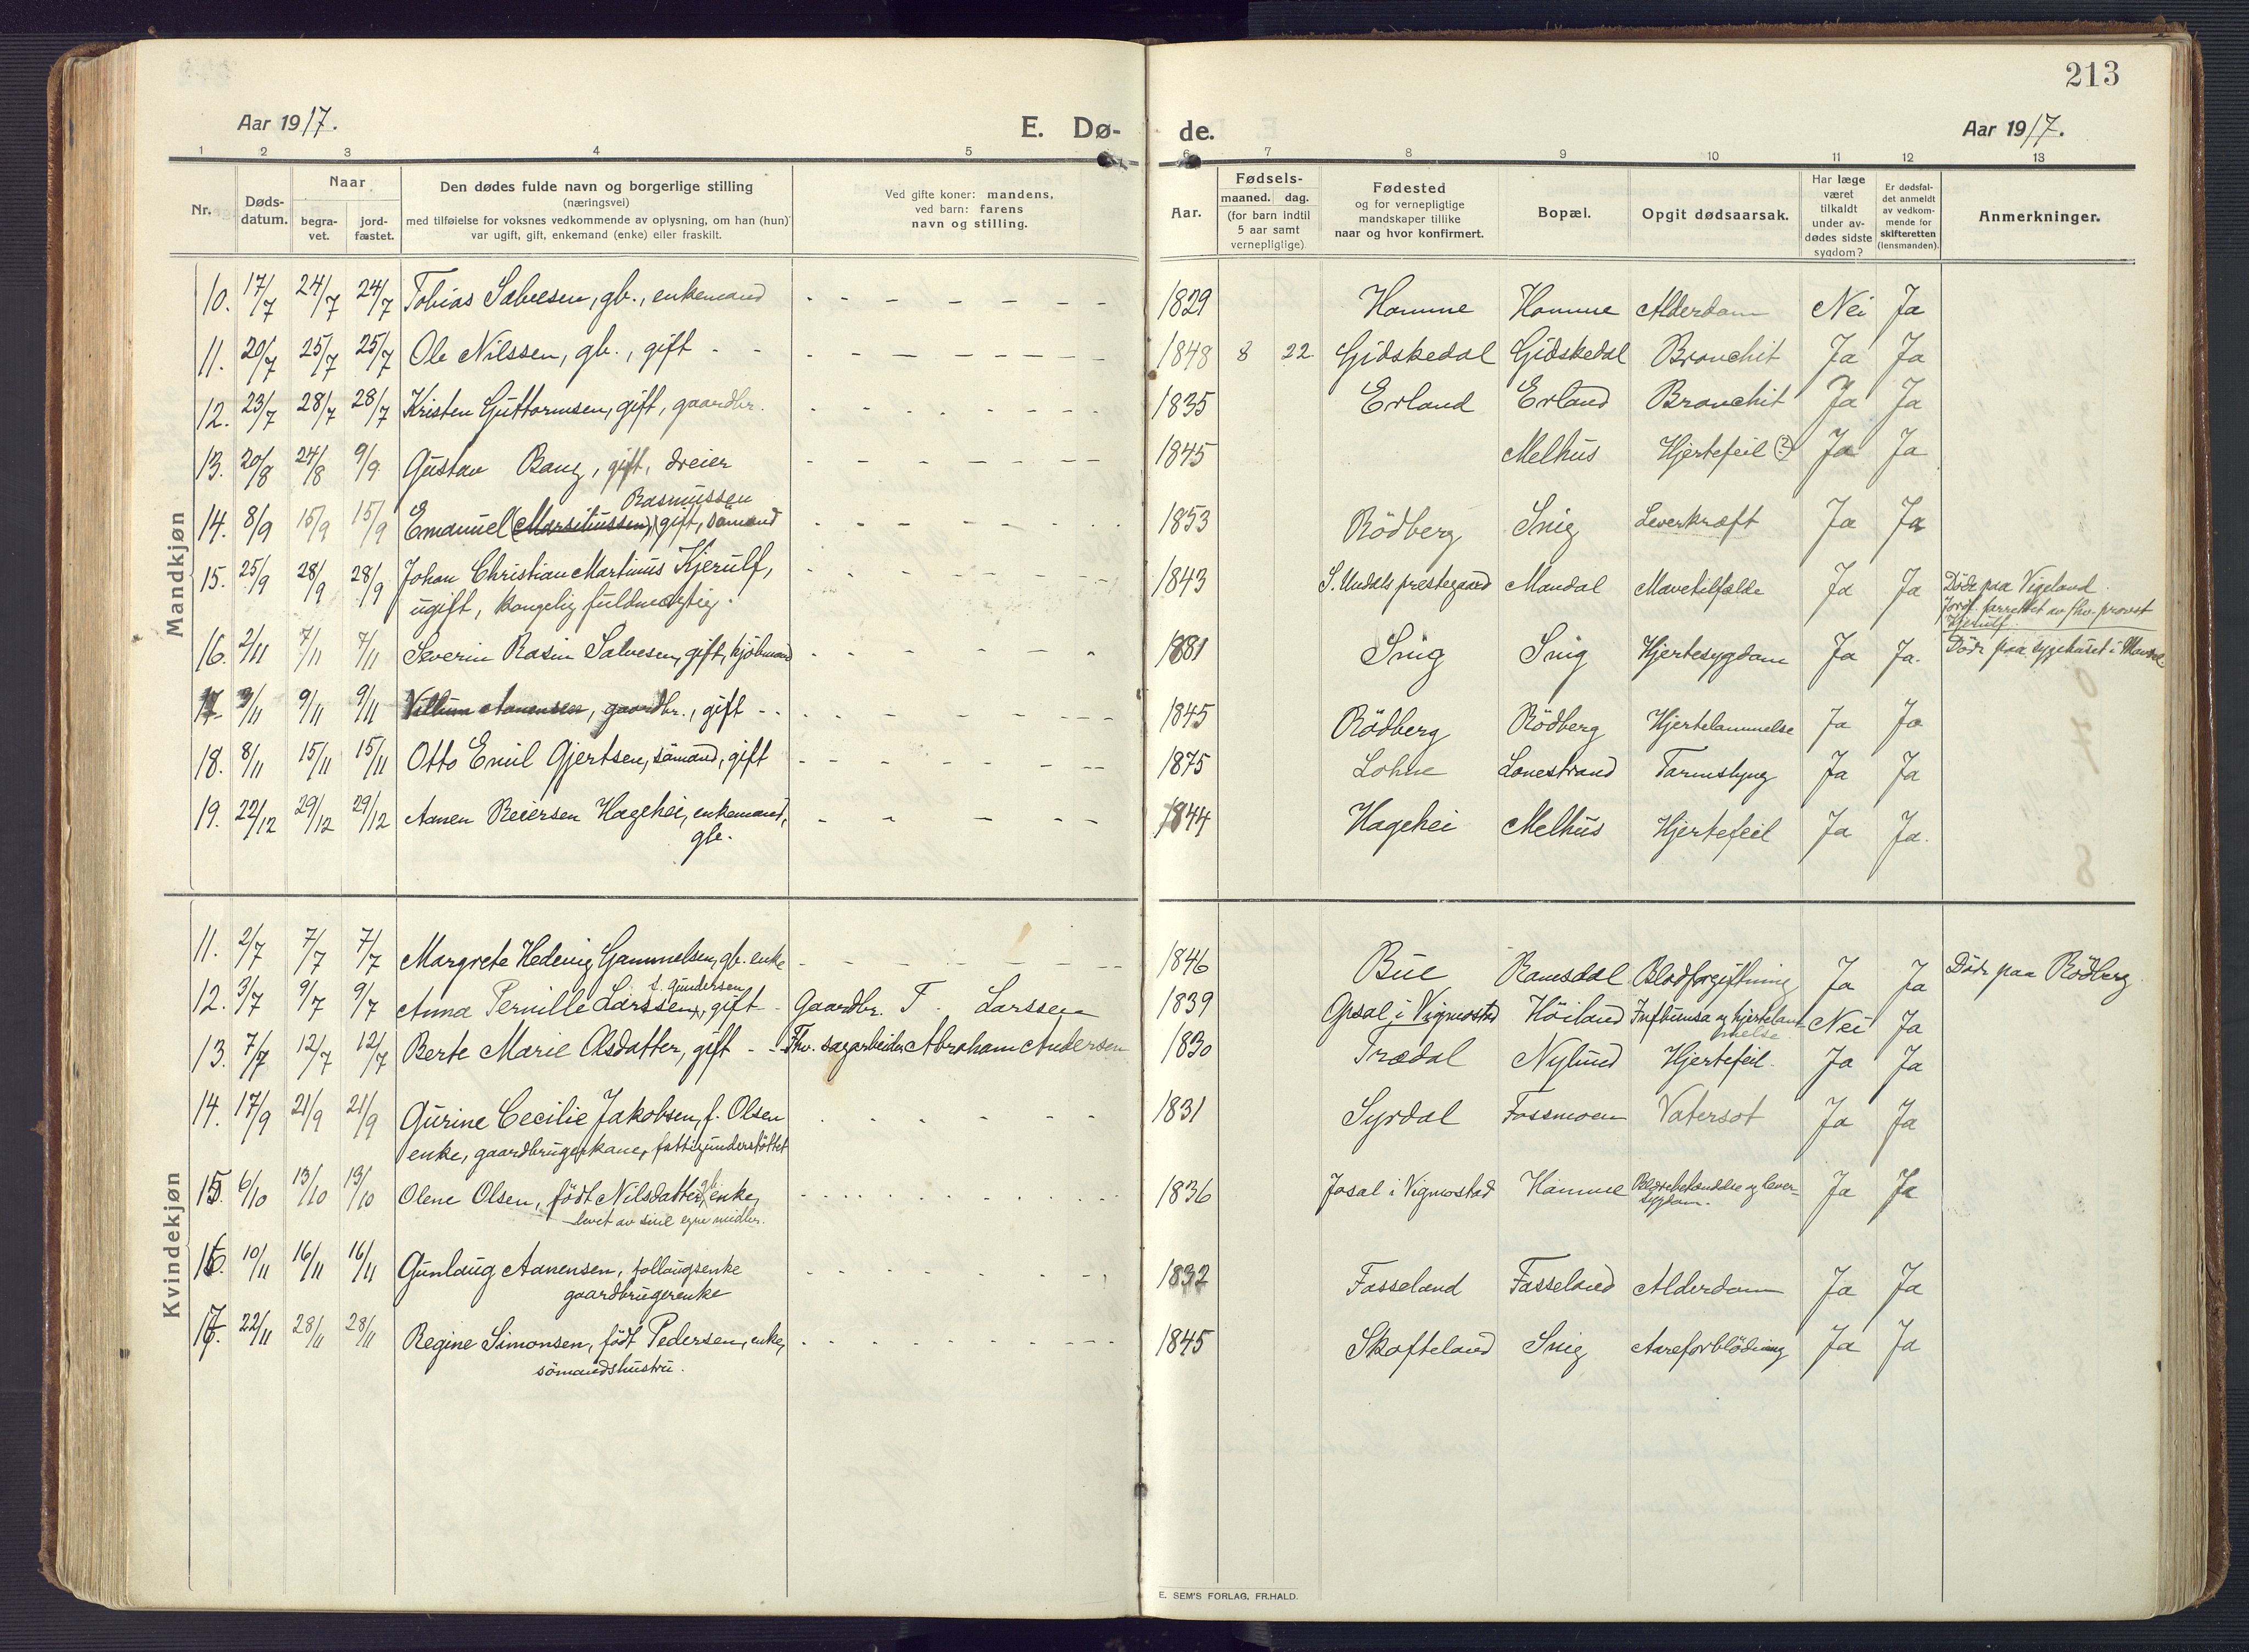 213
Aar 1917. E. Dø- de. Aar 1917.
1 2 3 4 5 6 7 8 9 10 11 12 13
Nr. Døds-datum. Naar begra-vet. jord-fæstet. Den dødes fulde navn og borgerlige stilling (næringsvei) med tilføielse for voksnes vedkommende av oplysning, om han (hun) var ugift, gift, enkemand (enke) eller fraskilt. Ved gifte koner: mandens, ved barn: farens navn og stilling. Aar. Fødsels- maaned. dag. (for barn indtil 5 aar samt vernepligtige). Fødested og for vernepligtige mandskaper tillike naar og hvor konfirmert. Bopæl. Opgit dødsaarsak. Har læge været tilkaldt under av-dødes sidste sygdom? Er dødsfal-det anmeldt av vedkom-mende for skifteretten (lensmanden). Anmerkninger.
Mandkjøn
10. 17/7 24/7 24/7 Tobias Salvesen, gb., enkemand 1829 Homme Homme Alderdom Nei Ja
11. 20/7 25/7 25/7 Ole Nilssen, gb., gift 1848 8 22 Gidskedal Gidskedal Bronchit Ja Ja
12. 23/7 28/7 28/7 Kristen Guttormsen, gift, gaardbr. 1835 Erland Erland Bronchit Ja Ja
13. 20/8 24/8 9/9 Gustav Bang, gift, dreier 1845 Melhus Hjertefeil (?) Ja Ja
Rasmussen
14. 8/9 15/9 15/9 Emanuel gift, sömand 1853 Rödberg Snig Leverkræft Ja Ja
15. 25/9 28/9 28/9 Johan Christian Martinus Kjerulf, 1843 S. Undals prestegaard Mandal Mavetilfælde Ja Ja Döde paa Vigeland.
ugift, kongelig fuldmægtig. Jordf. forrettet av fhv. provst
Kjerulf.
16. 2/11 7/11 7/11 Severin Rasin Salvesen, gift, kjöbmand 1881 Snig Snig Hjertesygdom Ja Ja. Döde paa sygehuset i Mandal.
17 3/11 9/11 9/11 Villum Aanensen, gaardbr., gift 1845 Rödberg Rödberg Hjertelammelse Ja Ja
18. 8/11 15/11 15/11 Otto Emil Gjertsen, sömand, gift 1875 Lohne Lonestrand Tarmslyng Ja Ja
19. 22/12 29/12 29/12 Aanen Reiersen Hagehei, enkemand, 1844 Hagehei Melhus Hjertefeil Ja Ja.
gb.
Kvindekjøn
11. 2/7 7/7 7/7 Margrete Hedevig Gammelsen, gb. enke 1846 Bue Ramsdal Blodforgiftning Ja Ja Döde paa Rödberg
f. Gundersen
12. 3/7 9/7 9/7 Anna Pernille Larssen, gift Gaardbr. T. Larssen 1839 Opsal i Vigmostad Höiland Influensa og hjertelam- Nei Ja
melse
13. 7/7 12/7 12/7 Berte Marie Olsdatter, gift Fhv. sagarbeider Abraham Andersen 1830 Trædal Nylund Hjertefeil. Ja Ja
14. 17/9 21/9 21/9 Gurine Cecilie Jakobsen, f. Olsen 1831 Syrdal Fossmoen Vatersot Ja Ja
enke, gaardbrugerkone, fattigunderstöttet
15. 6/10 13/10 13/10 Olene Olsen, födt Nilsdatter, enke, 1836 Josal i Vigmostad Homme Blærebetændelse og lever- Ja Ja
levet av sine egne midler. sygdom.
16. 10/11 16/11 16/11 Gunlaug Aanensen, 1832 Fasseland Fasseland Alderdom Ja Ja
gaardbrugerenke
17. 22/11 28/11 28/11 Regine Simonsen, födt Pedersen, enke, 1845 Skofteland Snig Aareforblödning Ja Ja
sömandshustru.
E. SEM'S FORLAG, FR.HALD.